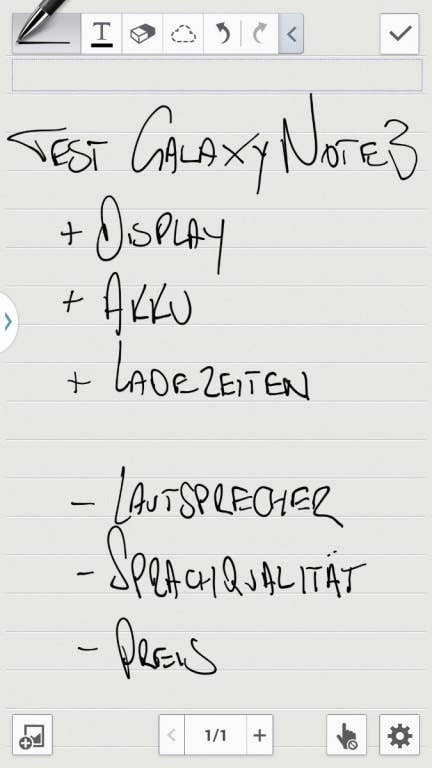 T
TEST GALAXY NOTE 3
+ DISPLAY
+ AKKU
+ LADEZEITEN
- LAUTSPRECHER
- SPRACHQUALITÄT
- PREIS
1/1